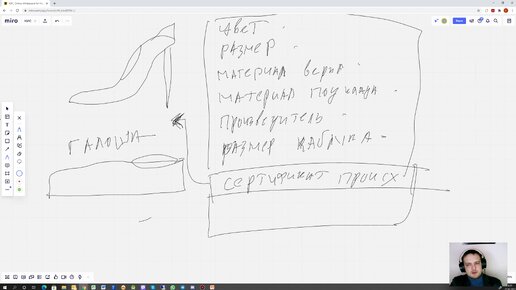 miro
ЦВЕТ
РАЗМЕР
МАТЕРИАЛ ВЕРХА
МАТЕРИАЛ ПОДКЛАДА
ПРОИЗВОДИТЕЛЬ
РАЗМЕР КАБЛУКА
ГАЛОША
СЕРТИФИКАТ ПРОИСХ